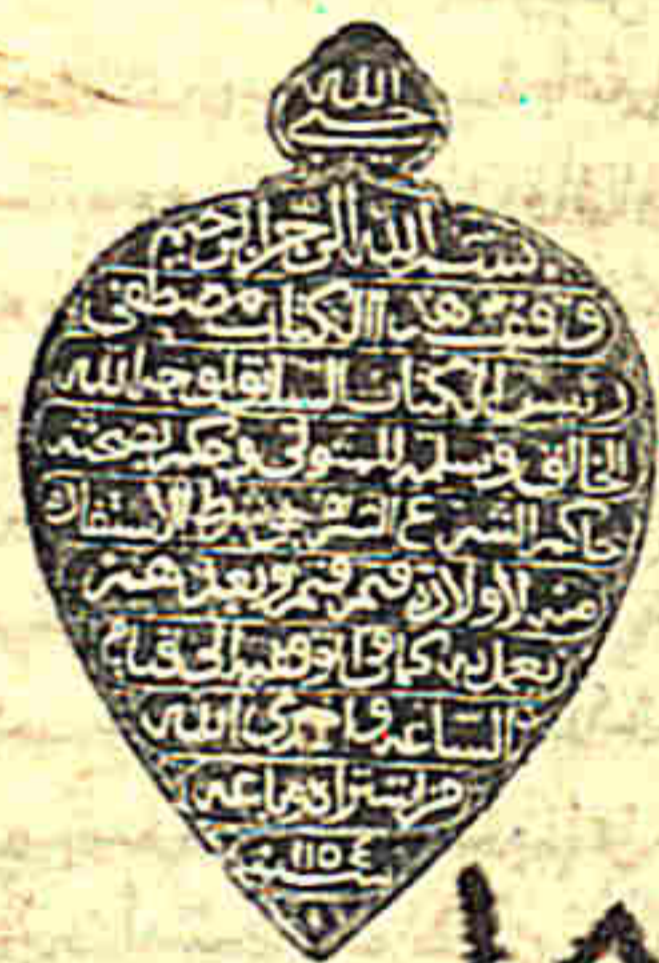 الله
حسبي
بسم الله الرحمن الرحيم
وقف هذا الكتاب مصطفى
رئيس الكتاب السابق لوجه الله
الخالق وسلمه للمتولي وحكم بصحته
حاكم الشرع الشريف بشرط الاستفادة
منه لاولاده ثم وبعدهم
يعمل به كما في الى قيام
الساعة واخزى الله
من
سنة ١١٥٤